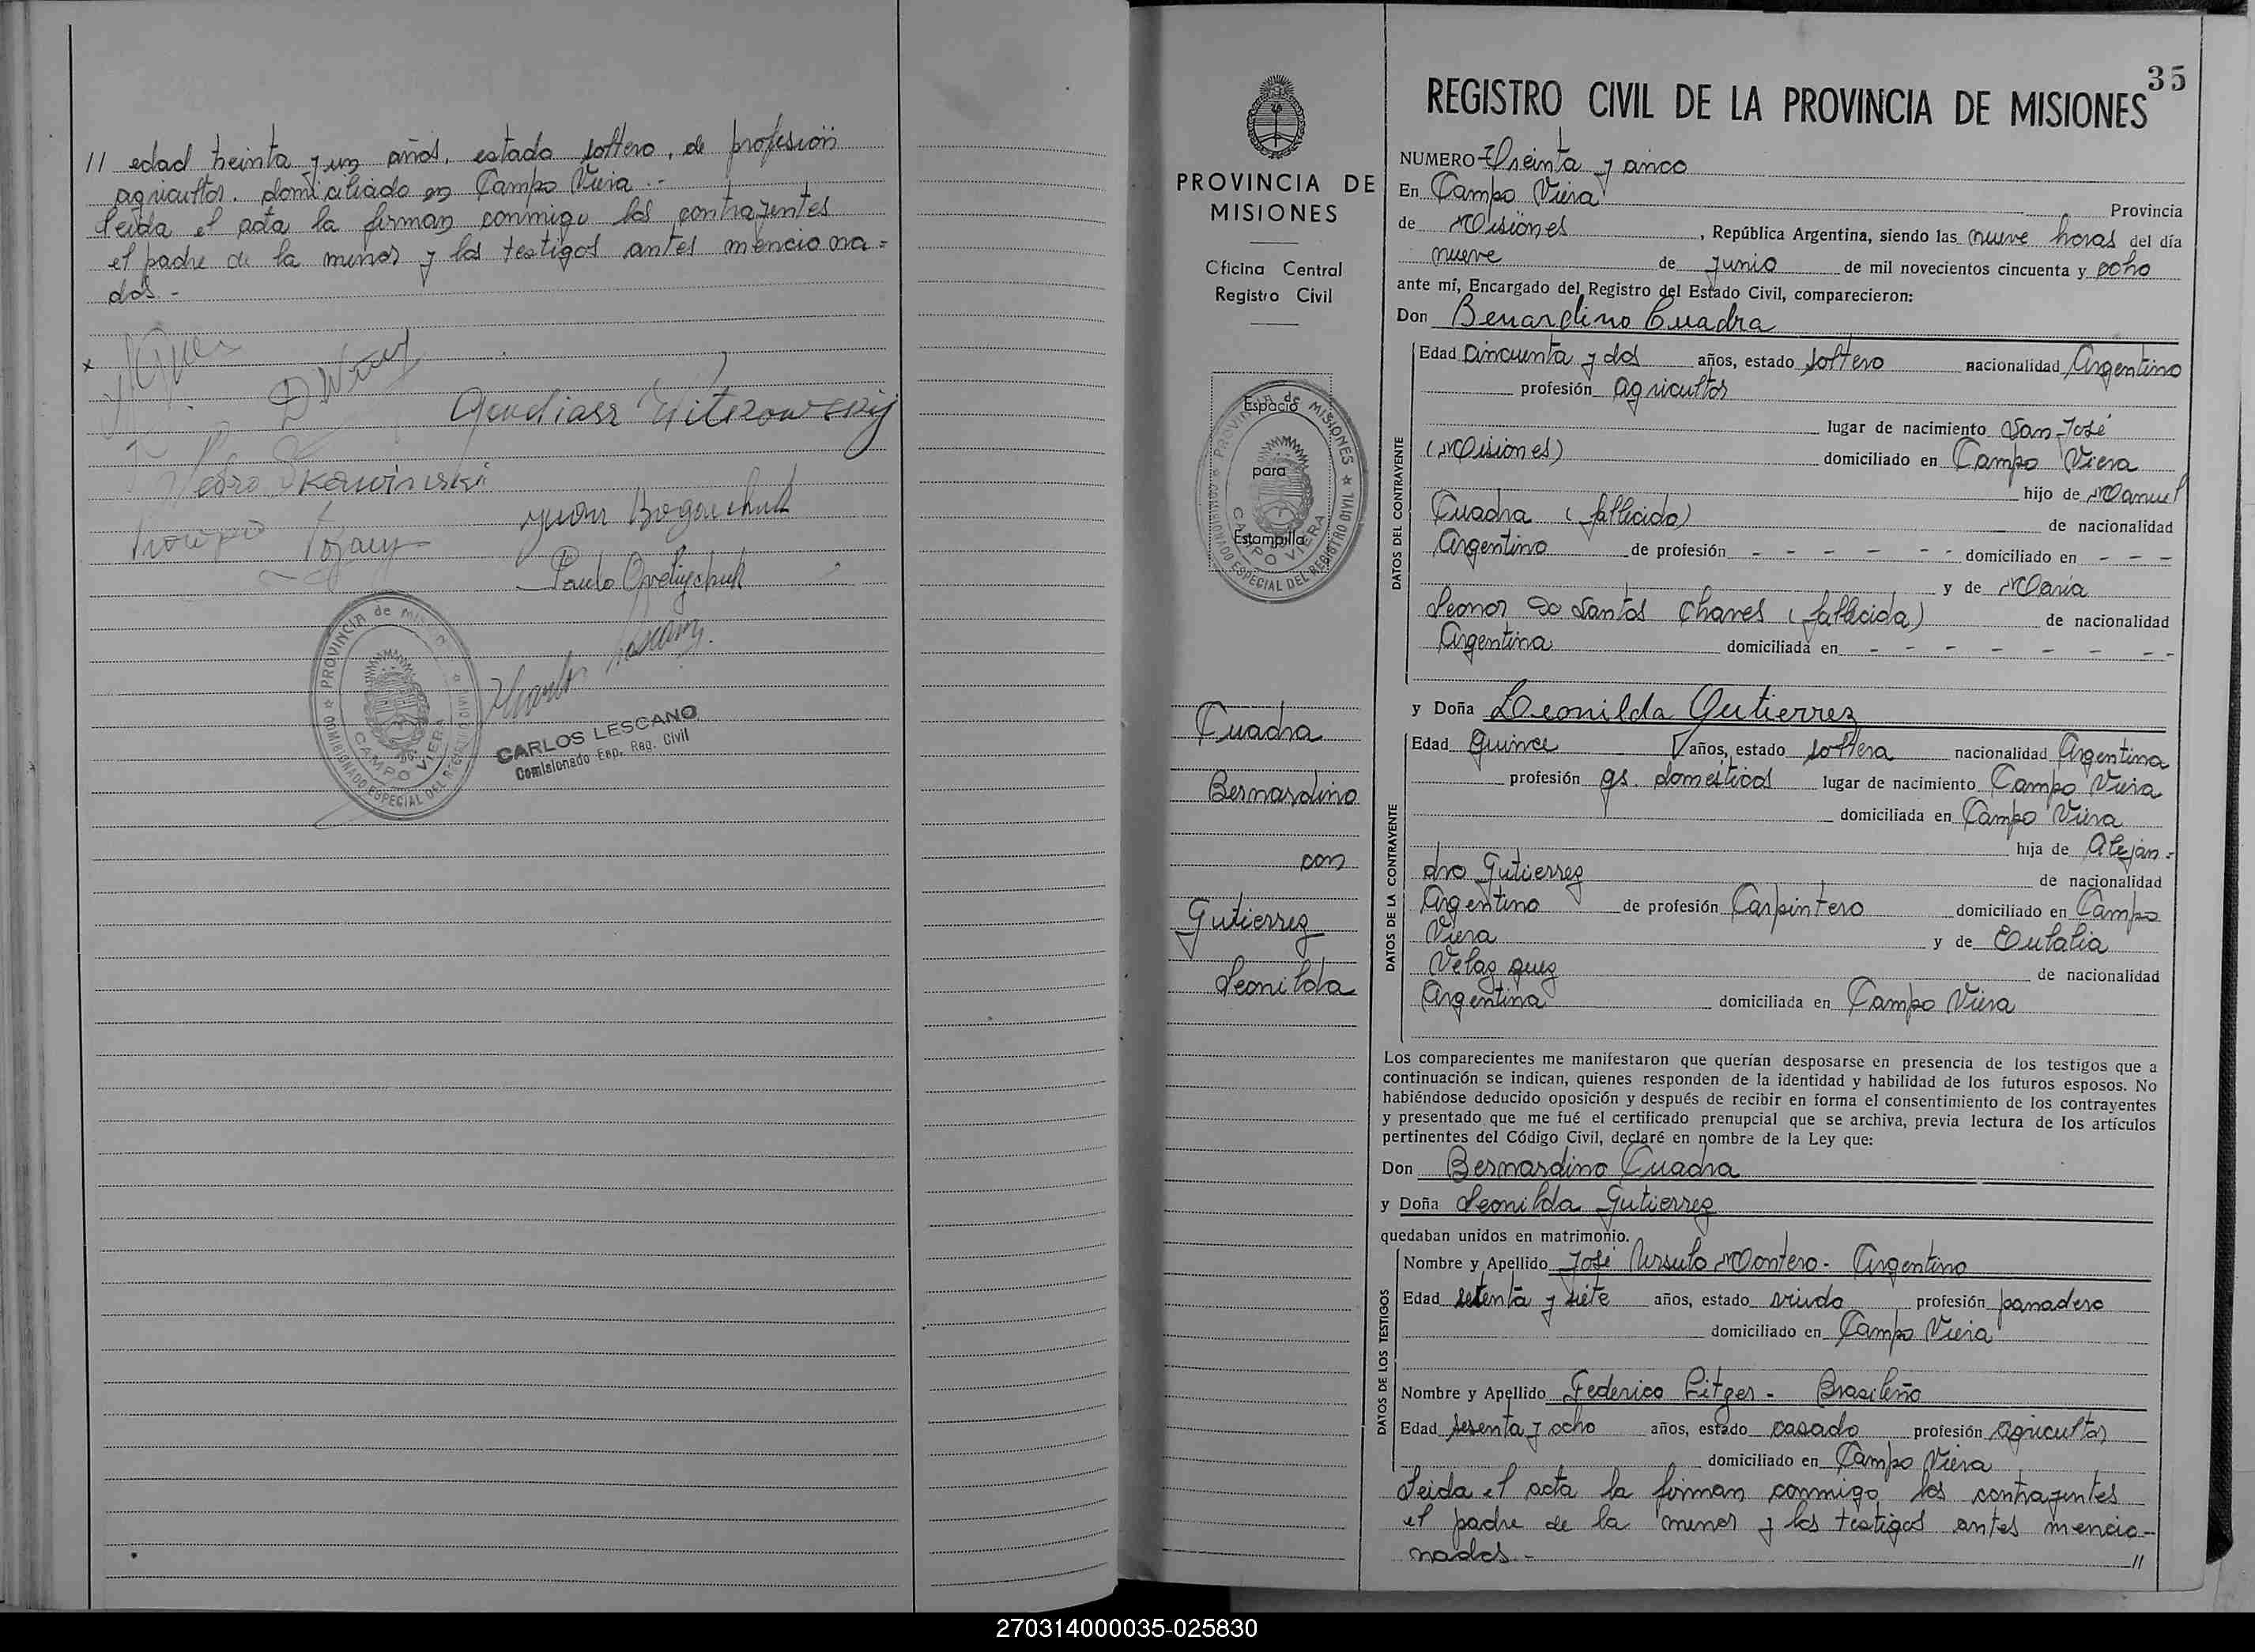 // edad treinta y un años, estado soltero, de profesión
agricultor, domiciliado en Campo Viera.-
Leida el acta la firman conmigo los contrayentes
el padre de la menor y los testigos antes menciona=
dos.-
Pedro Skowinski
Juan Bogauchuk
PROVINCIA de MISIONES
COMISIONADO ESPECIAL DEL REGISTRO CIVIL
CAMPO VIERA
CARLOS LESCANO
Comisionado Esp. Reg. Civil
35
PROVINCIA DE
MISIONES
Oficina Central
Registro Civil
Espacio
para
Estampilla
PROVINCIA de MISIONES
COMISIONADO ESPECIAL DEL REGISTRO CIVIL
CAMPO VIERA
Cuadra
Bernardino
con
Gutierrez
Leonilda
REGISTRO CIVIL DE LA PROVINCIA DE MISIONES
NUMERO Treinta y cinco
En Campo Viera Provincia
de Misiones, República Argentina, siendo las nueve horas del día
nueve de junio de mil novecientos cincuenta y ocho
ante mí, Encargado del Registro del Estado Civil, comparecieron:
Don Benardino Cuadra
DATOS DEL CONTRAYENTE
Edad cincuenta y dos años, estado soltero nacionalidad Argentino
profesión agricultor
lugar de nacimiento San José
(Misiones) domiciliado en Campo Viera
hijo de Manuel
Cuadra (fallecido) de nacionalidad
Argentino de profesión - - - - - - domiciliado en - - -
y de Maria
Leonor Do Santos Chaves (fallecida) de nacionalidad
Argentina domiciliada en - - - - - - - -
y Doña Leonilda Gutierrez
DATOS DE LA CONTRAYENTE
Edad quince años, estado soltera nacionalidad Argentina
profesión qs. domésticos lugar de nacimiento Campo Viera
domiciliada en Campo Viera
hija de Alejan=
dro Gutierrez de nacionalidad
Argentino de profesión Carpintero domiciliado en Campo
Viera y de Eulalia
Velazquez de nacionalidad
Argentina domiciliada en Campo Viera
Los comparecientes me manifestaron que querían desposarse en presencia de los testigos que a
continuación se indican, quienes responden de la identidad y habilidad de los futuros esposos. No
habiéndose deducido oposición y después de recibir en forma el consentimiento de los contrayentes
y presentado que me fué el certificado prenupcial que se archiva, previa lectura de los artículos
pertinentes del Código Civil, declaré en nombre de la Ley que:
Don Bernardino Cuadra
y Doña Leonilda Gutierrez
quedaban unidos en matrimonio.
DATOS DE LOS TESTIGOS
Nombre y Apellido José Ursulo Montero - Argentino
Edad setenta y siete años, estado viudo profesión panadero
domiciliado en Campo Viera
Nombre y Apellido Federico Pitger - Brasileño
Edad sesenta y ocho años, estado casado profesión agricultor
domiciliado en Campo Viera
Leida el acta la firman conmigo los contrayentes
el padre de la menor y los testigos antes mencio-
nados.- //
270314000035-025830